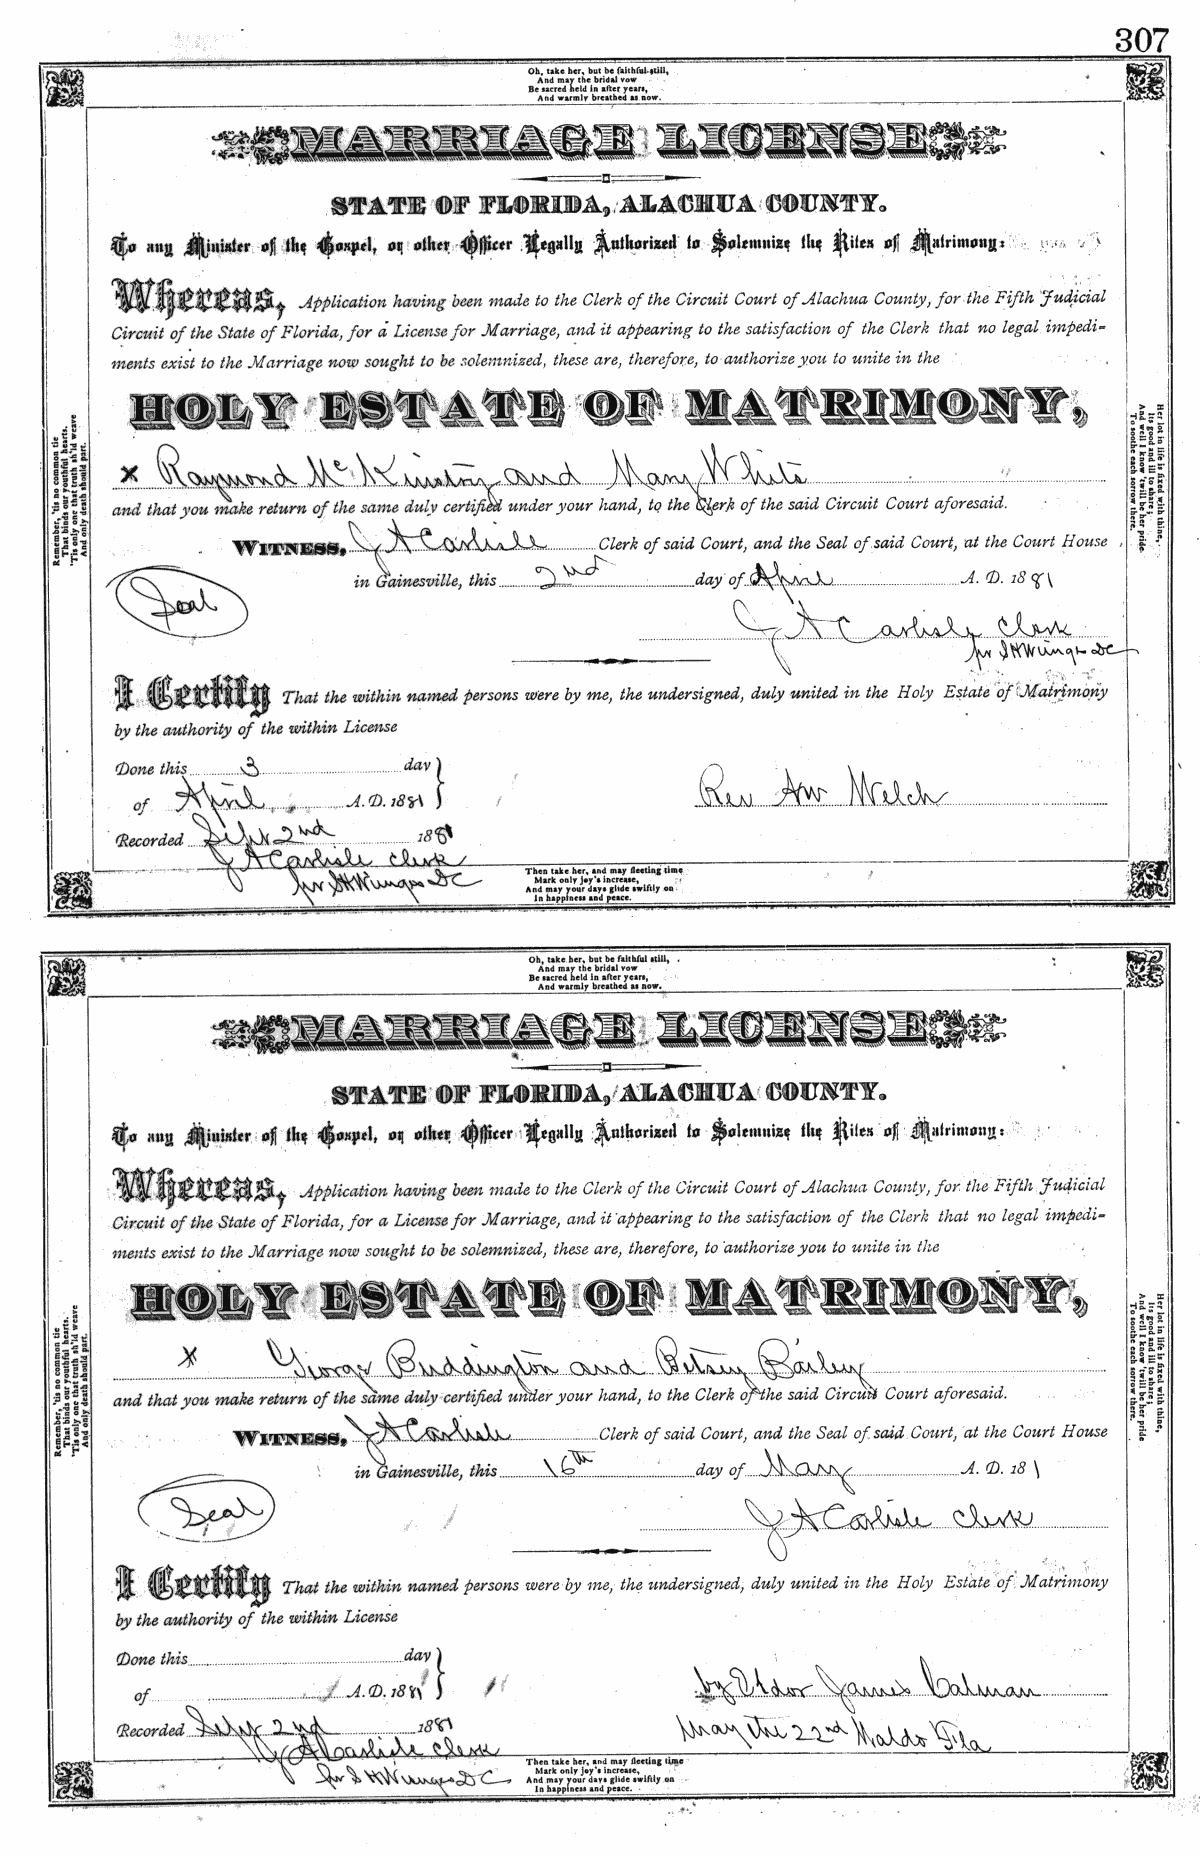 307
Oh, take her, but be faithful still,
And may the bridal vow
Be sacred held in after years,
And warmly breathed as now.
MARRIAGE LICENSE
STATE OF FLORIDA, ALACHUA COUNTY.
To any Minister of the Gospel, or other Officer Legally Authorized to Solemnize the Rites of Matrimony:
Whereas, Application having been made to the Clerk of the Circuit Court of Alachua County, for the Fifth Judicial
Circuit of the State of Florida, for a License for Marriage, and it appearing to the satisfaction of the Clerk that no legal impedi-
ments exist to the Marriage now sought to be solemnized, these are, therefore, to authorize you to unite in the
HOLY ESTATE OF MATRIMONY,
x Raymond McKinstry and Mary White
and that you make return of the same duly certified under your hand, to the Clerk of the said Circuit Court aforesaid.
WITNESS, J A Carlisle Clerk of said Court, and the Seal of said Court, at the Court House
in Gainesville, this 2nd day of April A. D. 1881
Seal
J A Carlisle Clerk
pr S H Wienges DC
I Certify That the within named persons were by me, the undersigned, duly united in the Holy Estate of Matrimony
by the authority of the within License
Done this 3 day
of April A. D. 1881
Rev AW Welch
Recorded Sept 2nd 1881
J A Carlisle Clerk
pr S H Wienges DC
Then take her, and may fleeting time
Mark only joy's increase,
And may your days glide swiftly on
In happiness and peace.
Remember, 'tis no common tie
That binds our youthful hearts.
'Tis only one that truth sh'ld weave
And only death should part.
Her lot in life is fixed with thine,
Its good and ill to share;
And well I know 'twill be her pride
To soothe each sorrow there.
Oh, take her, but be faithful still,
And may the bridal vow
Be sacred held in after years,
And warmly breathed as now.
MARRIAGE LICENSE
STATE OF FLORIDA, ALACHUA COUNTY.
To any Minister of the Gospel, or other Officer Legally Authorized to Solemnize the Rites of Matrimony:
Whereas, Application having been made to the Clerk of the Circuit Court of Alachua County, for the Fifth Judicial
Circuit of the State of Florida, for a License for Marriage, and it appearing to the satisfaction of the Clerk that no legal impedi-
ments exist to the Marriage now sought to be solemnized, these are, therefore, to authorize you to unite in the
HOLY ESTATE OF MATRIMONY,
x George Buddington and Betsey Bailey
and that you make return of the same duly certified under your hand, to the Clerk of the said Circuit Court aforesaid.
WITNESS, J A Carlisle Clerk of said Court, and the Seal of said Court, at the Court House
in Gainesville, this 16th day of May A. D. 181
Seal
J A Carlisle Clerk
I Certify That the within named persons were by me, the undersigned, duly united in the Holy Estate of Matrimony
by the authority of the within License
Done this day
of A. D. 1881
by Eldor James Calman
May the 22nd Waldo Fla
Recorded Sept 2nd 1881
J A Carlisle Clerk
pr S H Wienges DC
Then take her, and may fleeting time
Mark only joy's increase,
And may your days glide swiftly on
In happiness and peace.
Remember, 'tis no common tie
That binds our youthful hearts.
'Tis only one that truth sh'ld weave
And only death should part.
Her lot in life is fixed with thine,
Its good and ill to share;
And well I know 'twill be her pride
To soothe each sorrow there.